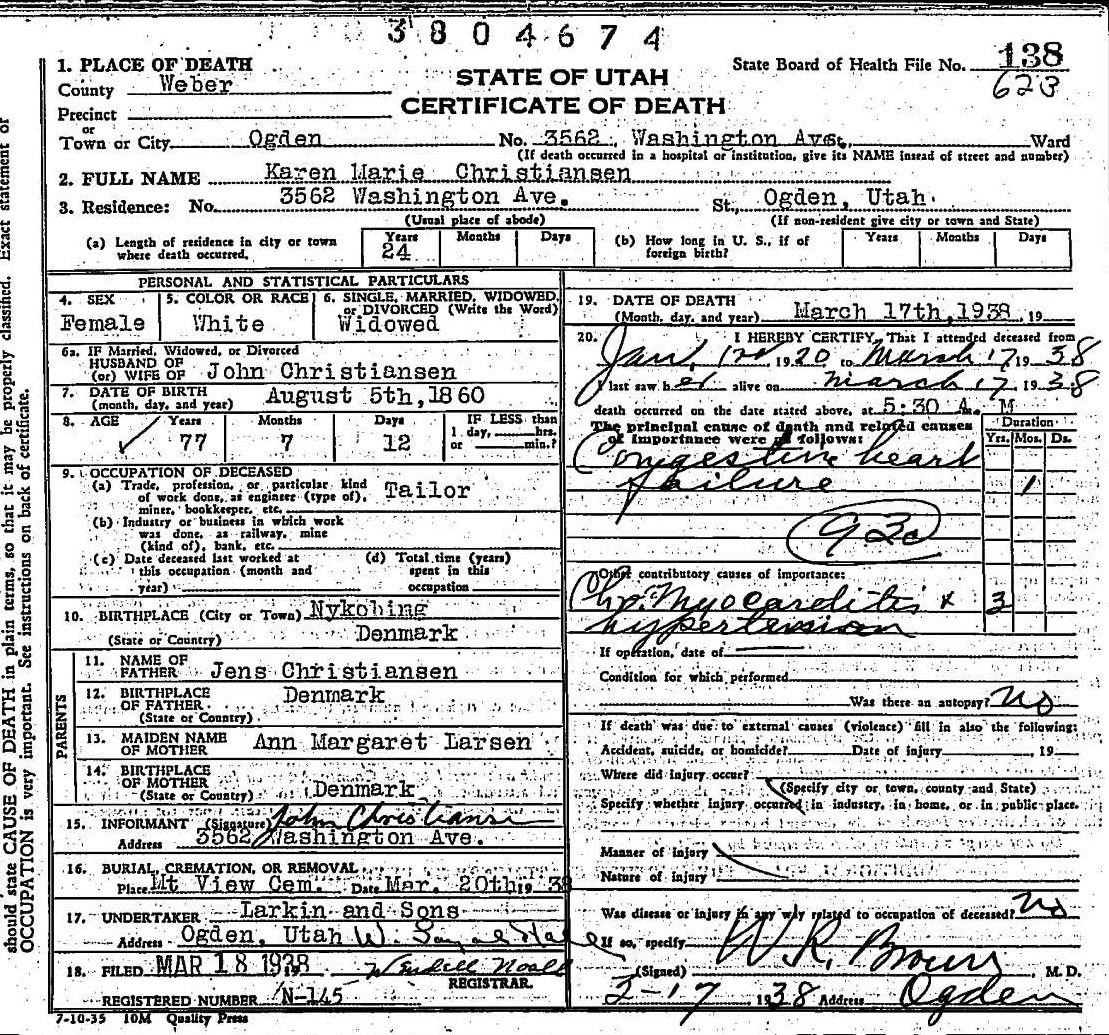 3804674
State Board of Health File No. 138
623
1. PLACE OF DEATH
County Weber
STATE OF UTAH
CERTIFICATE OF DEATH
Precinct
or
Town or City Ogden No. 3562 Washington Ave. St., Ward
(If death occurred in a hospital or institution, give its NAME insead of street and number)
2. FULL NAME Karen Marie Christiansen
3. Residence: No. 3562 Washington Ave. St., Ogden, Utah.
(Usual place of abode) (If non-resident give city or town and State)
(a) Length of residence in city or town where death occurred. Years 24 Months Days
(b) How long in U. S., if of foreign birth? Years Months Days
PERSONAL AND STATISTICAL PARTICULARS
4. SEX Female
5. COLOR OR RACE White
6. SINGLE, MARRIED, WIDOWED, or DIVORCED (Write the Word) Widowed
6a. IF Married, Widowed, or Divorced
HUSBAND OF
(or) WIFE OF John Christiansen
7. DATE OF BIRTH
(month, day, and year) August 5th, 1860
8. AGE Years 77 Months 7 Days 12 IF LESS than
1 day, hrs.
or min.?
9. OCCUPATION OF DECEASED
(a) Trade, profession, or particular kind
of work done, as engineer (type of),
miner, bookkeeper, etc. Tailor
(b) Industry or business in which work
was done, as railway, mine
(kind of), bank, etc.
(c) Date deceased last worked at
this occupation (month and
year)
(d) Total time (years)
spent in this
occupation
10. BIRTHPLACE (City or Town) Nykobing
(State or Country) Denmark
PARENTS
11. NAME OF
FATHER Jens Christiansen
12. BIRTHPLACE
OF FATHER Denmark
(State or Country)
13. MAIDEN NAME
OF MOTHER Ann Margaret Larsen
14. BIRTHPLACE
OF MOTHER
(State or Country) Denmark
15. INFORMANT (Signature) John Christianse
Address 3562 Washington Ave.
16. BURIAL, CREMATION, OR REMOVAL
Place Mt View Cem. Date Mar. 20th 19 38
17. UNDERTAKER Larkin and Sons
Address Ogden, Utah W.
18. FILED MAR 18 1938 Wendell Noall
REGISTRAR.
REGISTERED NUMBER N-145
7-10-35 10M Quality Press
19. DATE OF DEATH
(Month, day, and year) March 17th, 1938 19
20. I HEREBY CERTIFY, That I attended deceased from
Jan. 12, 1920 to March 17, 19 38
I last saw her alive on March 17, 1938
death occurred on the date stated above, at 5:30 A. M
The principal cause of death and related causes
of importance were as follows:
Duration
Yrs. Mos. Ds.
Congestive heart
failure 1
93c
Other contributory causes of importance:
Chr. Myocarditis & 3
hypertension
If operation, date of
Condition for which performed
Was there an autopsy? No
If death was due to external causes (violence) fill in also the following:
Accident, suicide, or homicide? Date of injury , 19
Where did injury occur?
(Specify city or town, county and State)
Specify whether injury occurred in industry, in home, or in public place.
Manner of injury
Nature of injury
Was disease or injury in any way related to occupation of deceased? No
If so, specify
(Signed) W R. Brown M. D.
3-17 1938 Address Ogden
should state CAUSE OF DEATH in plain terms, so that it may be properly classified. Exact statement of
OCCUPATION is very important. See instructions on back of certificate.